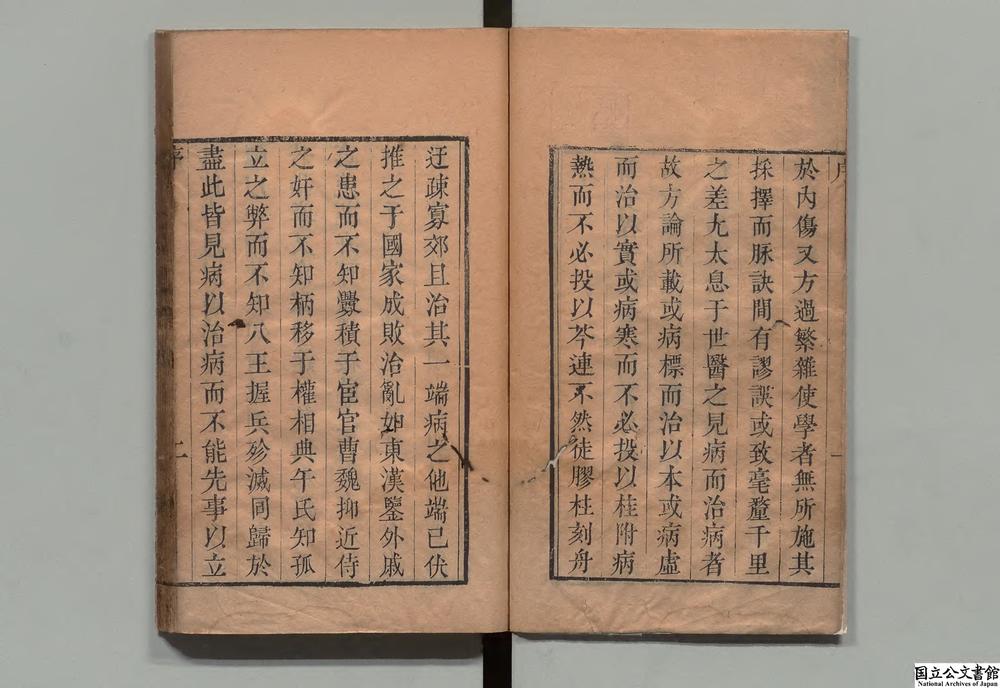 序
一
於内傷又方過繁雜使學者無所施其
採擇而脉訣間有謬誤或致毫釐千里
之差尢太息于世醫之見病而治病者
故方論所載或病標而治以本或病虛
而治以實或病寒而不必投以桂附病
熱而不必投以芩連不然徒膠柱刻舟
迂疎寡郊且治其一端病之他端已伏
推之于國家成敗治亂如東漢鑒外戚
之患而不知釁積于宦官曹魏抑近侍
之奸而不知柄移于權相典午氏知孤
立之弊而不知八王握兵殄滅同歸於
盡此皆見病以治病而不能先事以立
序
二
国立公文書館
National Archives of Japan